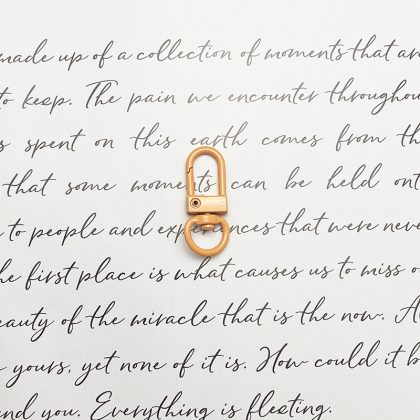 made up of a collection of moments that ar
to keep. The pain we encounter throughou
s spent on this earth comes from th
that some moments can be held ont
to people and experiences that were neve
he first place is what causes us to miss o
eauty of the miracle that is the now. A
yours, yet none of it is. How could it b
nd you. Everything is fleeting.